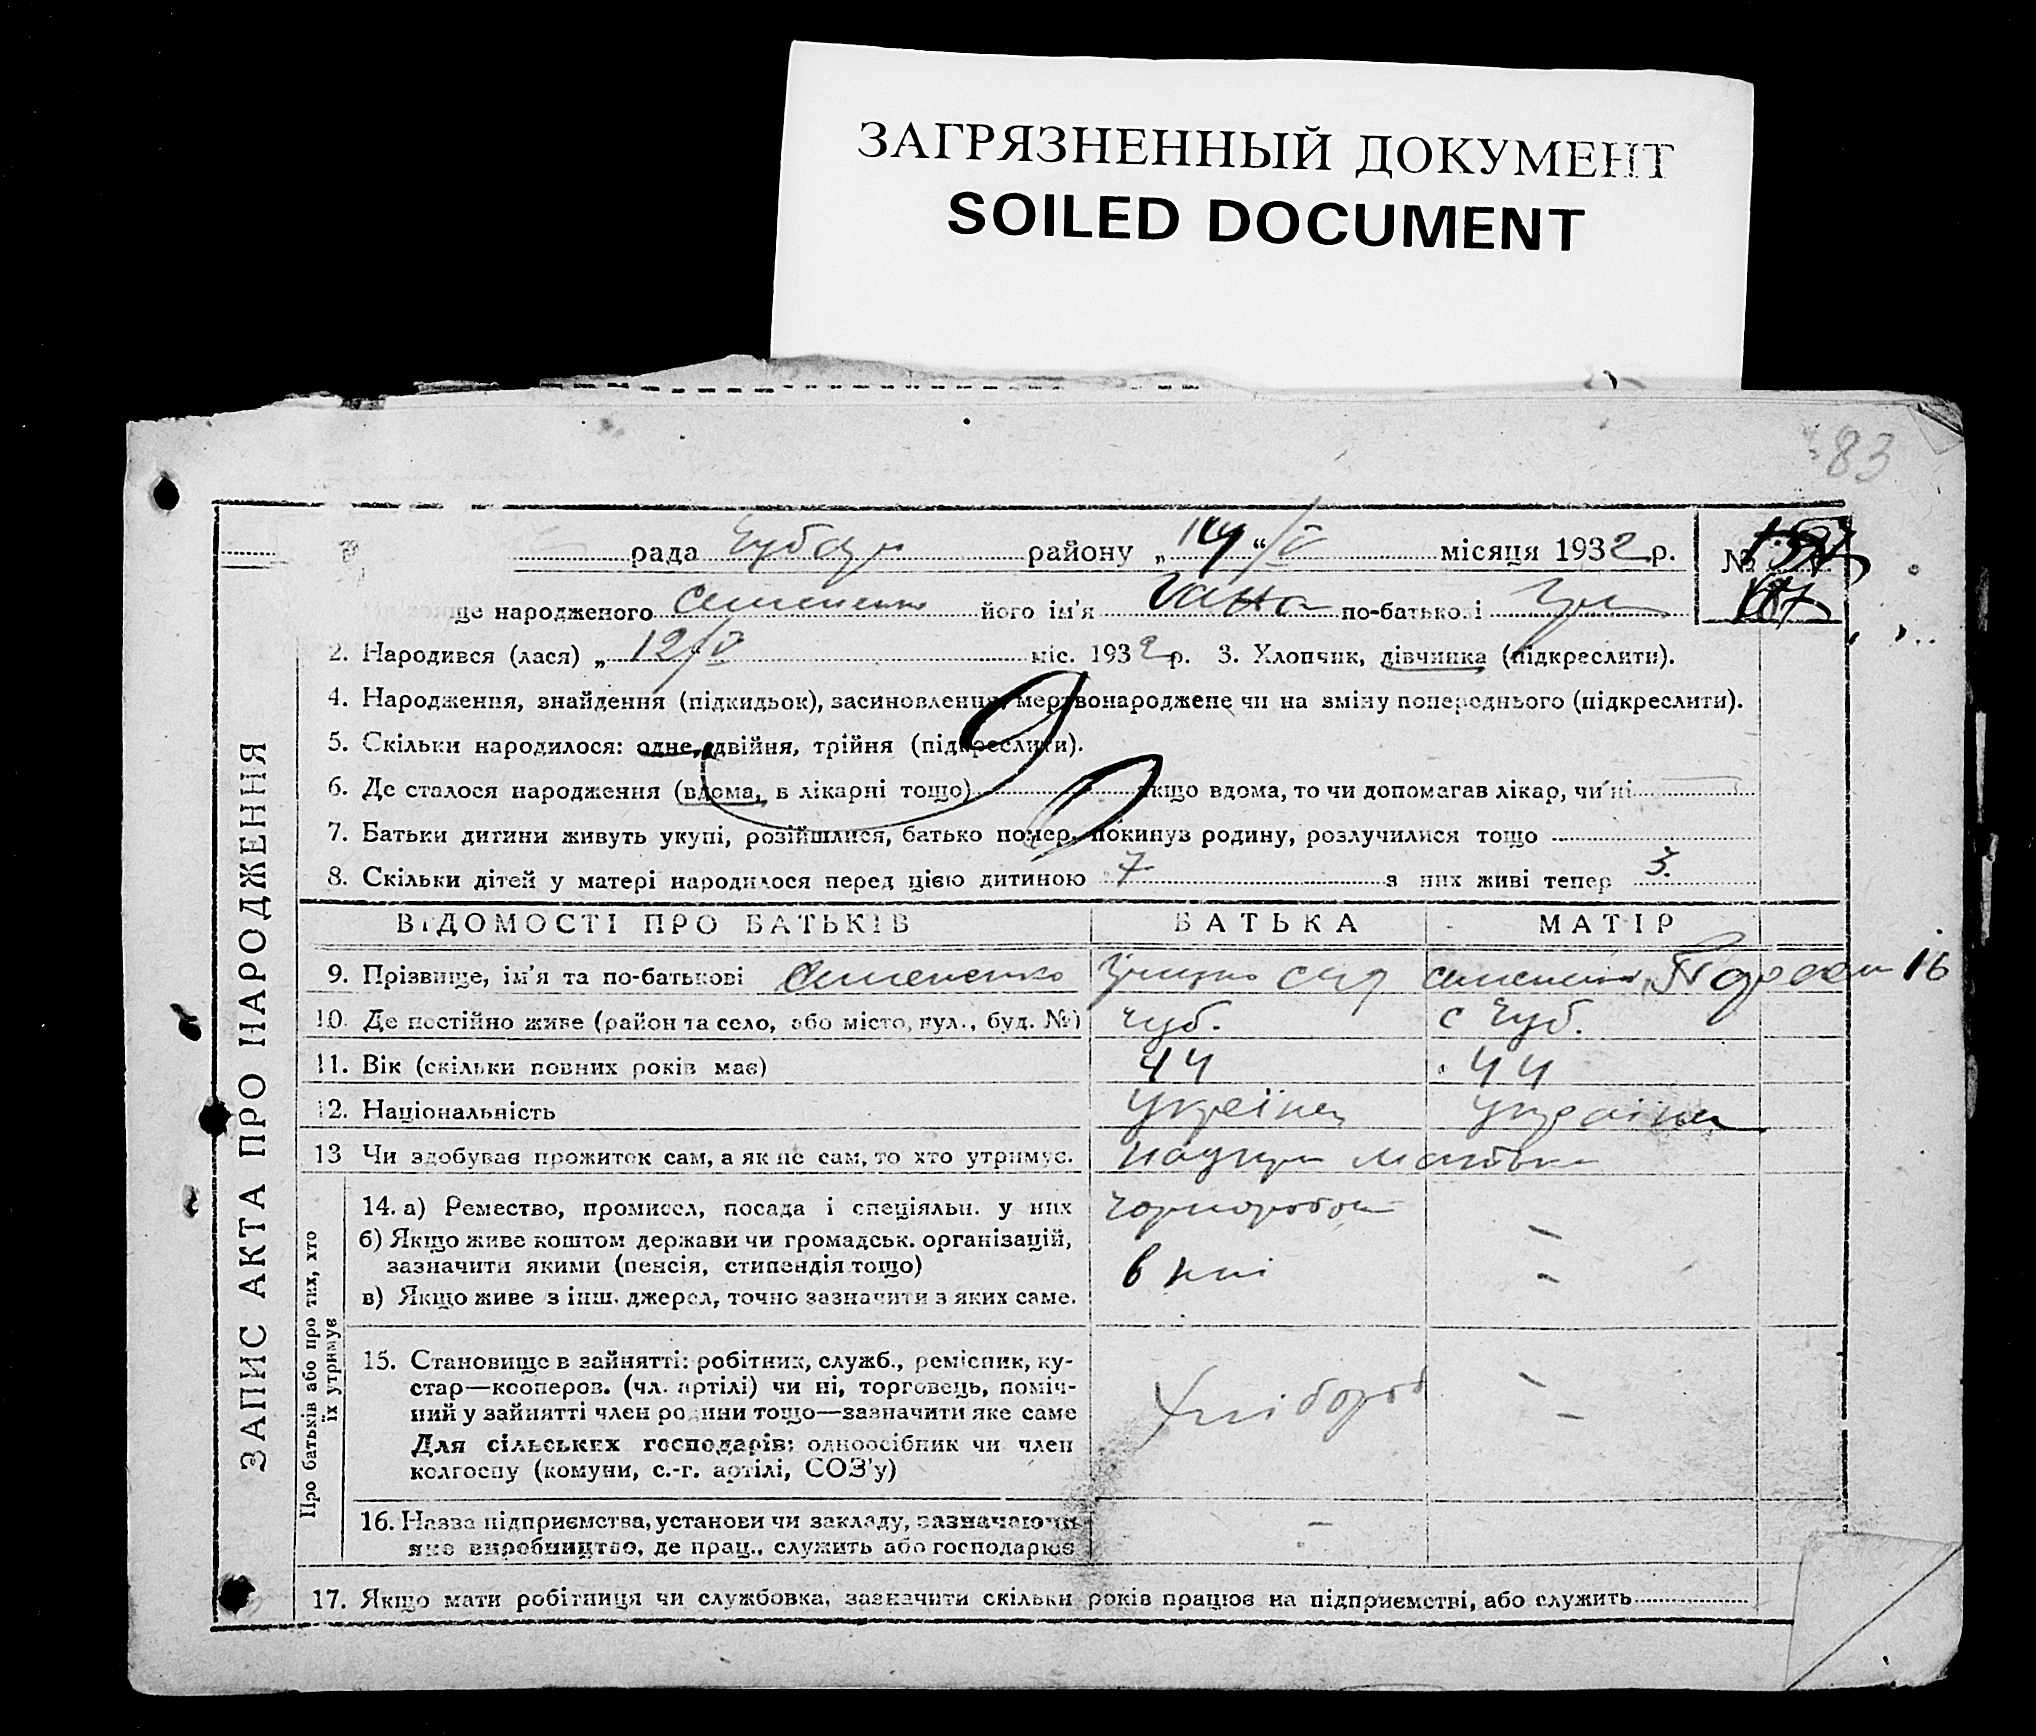 ЗАГРЯЗНЕННЫЙ ДОКУМЕНТ
SOILED DOCUMENT
83
рада району „14“ V місяця 1932 р. №
ще народженого Семененко його ім'я по-батькові
2. Народився (лася) „12/V міс. 1932 р. 3. Хлопчик, дівчинка (підкреслити).
4. Народження, знайдення (підкидьок), засиновлення, мертвонароджене чи на зміну попереднього (підкреслити).
5. Скільки народилося: одне, двійня, трійня (підкреслити).
6. Де сталося народження (вдома, в лікарні тощо) якщо вдома, то чи допомагав лікар, чи ні
7. Батьки дитини живуть укупі, розійшлися, батько помер, покинув родину, розлучилися тощо
8. Скільки дітей у матері народилося перед цією дитиною 7 з них живі тепер 3.
ВІДОМОСТІ ПРО БАТЬКІВ БАТЬКА МАТІР
9. Прізвище, ім'я та по-батькові Семененко
10. Де постійно живе (район та село, або місто, вул., буд. №) Чуб. с Чуб.
11. Вік (скільки повних років має) 44 44
12. Національність Україн Україн
13 Чи здобував прожиток сам, а як не сам, то хто утримує.
14. а) Ремество, промисел, посада і спеціяльн. у них чорнороб –
б) Якщо живе коштом держави чи громадськ. організацій,
зазначити якими (пенсія, стипендія тощо) –
в) Якщо живе з інш. джерел, точно зазначити з яких саме.
15. Становище в зайнятті: робітник, служб., ремісник, ку-
стар—кооперов. (чл. артілі) чи ні, торговець, поміч-
ний у зайнятті член родини тощо—зазначити яке саме хлібороб –
Для сільських господарів: одноосібник чи член
колгоспу (комуни, с.-г. артілі, СОЗ'у)
16. Назва підприємства, установи чи закладу, зазначаючи –
яке виробництво, де прац., служить або господарює
17. Якщо мати робітниця чи службовка, зазначити скільки років працює на підприємстві, або служить
ЗАПИС АКТА ПРО НАРОДЖЕННЯ
Про батьків або про тих, хто
їх утримує